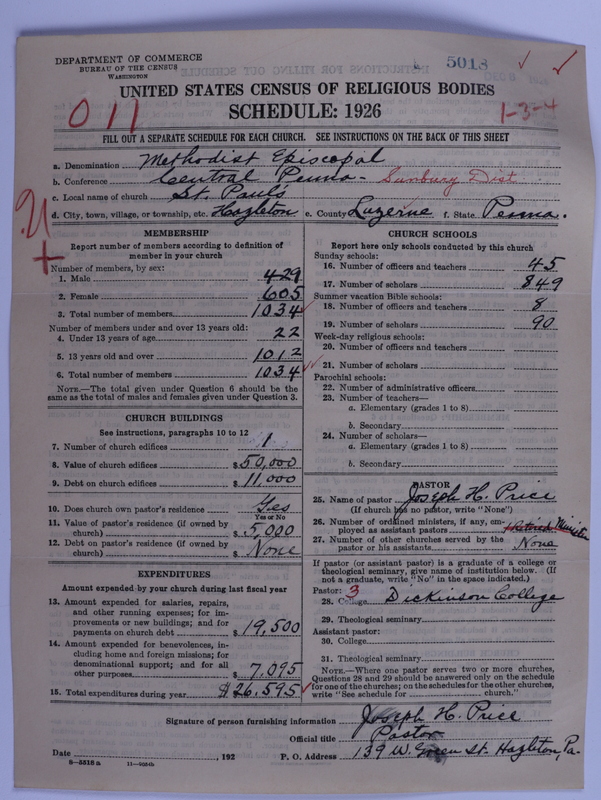 DEPARTMENT OF COMMERCE
BUREAU OF THE CENSUS
WASHINGTON
5018
UNITED STATES CENSUS OF RELIGIOUS BODIES
SCHEDULE: 1926
011
1-3-4
FILL OUT A SEPARATE SCHEDULE FOR EACH CHURCH. SEE INSTRUCTIONS ON THE BACK OF THIS SHEET
a. Denomination Methodist Episcopal
b. Conference Central Penna - Sunbury Dist
c. Local name of church St. Paul's
d. City, town, village, or township, etc. Hazleton e. County Luzerne f. State Penna.
MEMBERSHIP
Report number of members according to definition of
member in your church
Number of members, by sex:
1. Male 429
2. Female 605
3. Total number of members 1034
Number of members under and over 13 years old:
4. Under 13 years of age 22
5. 13 years old and over 1012
6. Total number of members 1034
NOTE.—The total given under Question 6 should be
same as the total of males and females given under Question 3.
CHURCH BUILDINGS
See instructions, paragraphs 10 to 12
7. Number of church edifices 1
8. Value of church edifices $50,000
9. Debt on church edifices $11,000
10. Does church own pastor's residence Yes
Yes or No
11. Value of pastor's residence (if owned by
church) $5,000
12. Debt on pastor's residence (if owned by
church) $ None
EXPENDITURES
Amount expended by your church during last fiscal year
13. Amount expended for salaries, repairs,
and other running expenses; for im-
provements or new buildings; and for
payments on church debt $19,500
14. Amount expended for benevolences, in-
cluding home and foreign missions; for
denominational support; and for all
other purposes $7,095
15. Total expenditures during year $26,595
CHURCH SCHOOLS
Report here only schools conducted by this church
Sunday schools:
16. Number of officers and teachers 45
17. Number of scholars 849
Summer vacation Bible schools:
18. Number of officers and teachers 8
19. Number of scholars 90
Week-day religious schools:
20. Number of officers and teachers
21. Number of scholars
Parochial schools:
22. Number of administrative officers
23. Number of teachers—
a. Elementary (grades 1 to 8)
b. Secondary
24. Number of scholars—
a. Elementary (grades 1 to 8)
b. Secondary
PASTOR
25. Name of pastor Joseph H. Price
(If church has no pastor, write "None")
26. Number of ordained ministers, if any, em-
ployed as assistant pastors 1 Retired Minister
27. Number of other churches served by the
pastor or his assistants None
If pastor (or assistant pastor) is a graduate of a college or
theological seminary, give name of institution below. (If
not a graduate, write "No" in the space indicated.)
Pastor: 3
28. College Dickinson College
29. Theological seminary
Assistant pastor:
30. College
31. Theological seminary
NOTE.—Where one pastor serves two or more churches,
Questions 28 and 29 should be answered only on the schedule
for one of the churches; on the schedules for the other churches,
write "See schedule for church."
Signature of person furnishing information Joseph H. Price
Official title Pastor
Date , 192 P. O. Address 139 W. Green St. Hazleton, Pa.
8—5518 a 11—